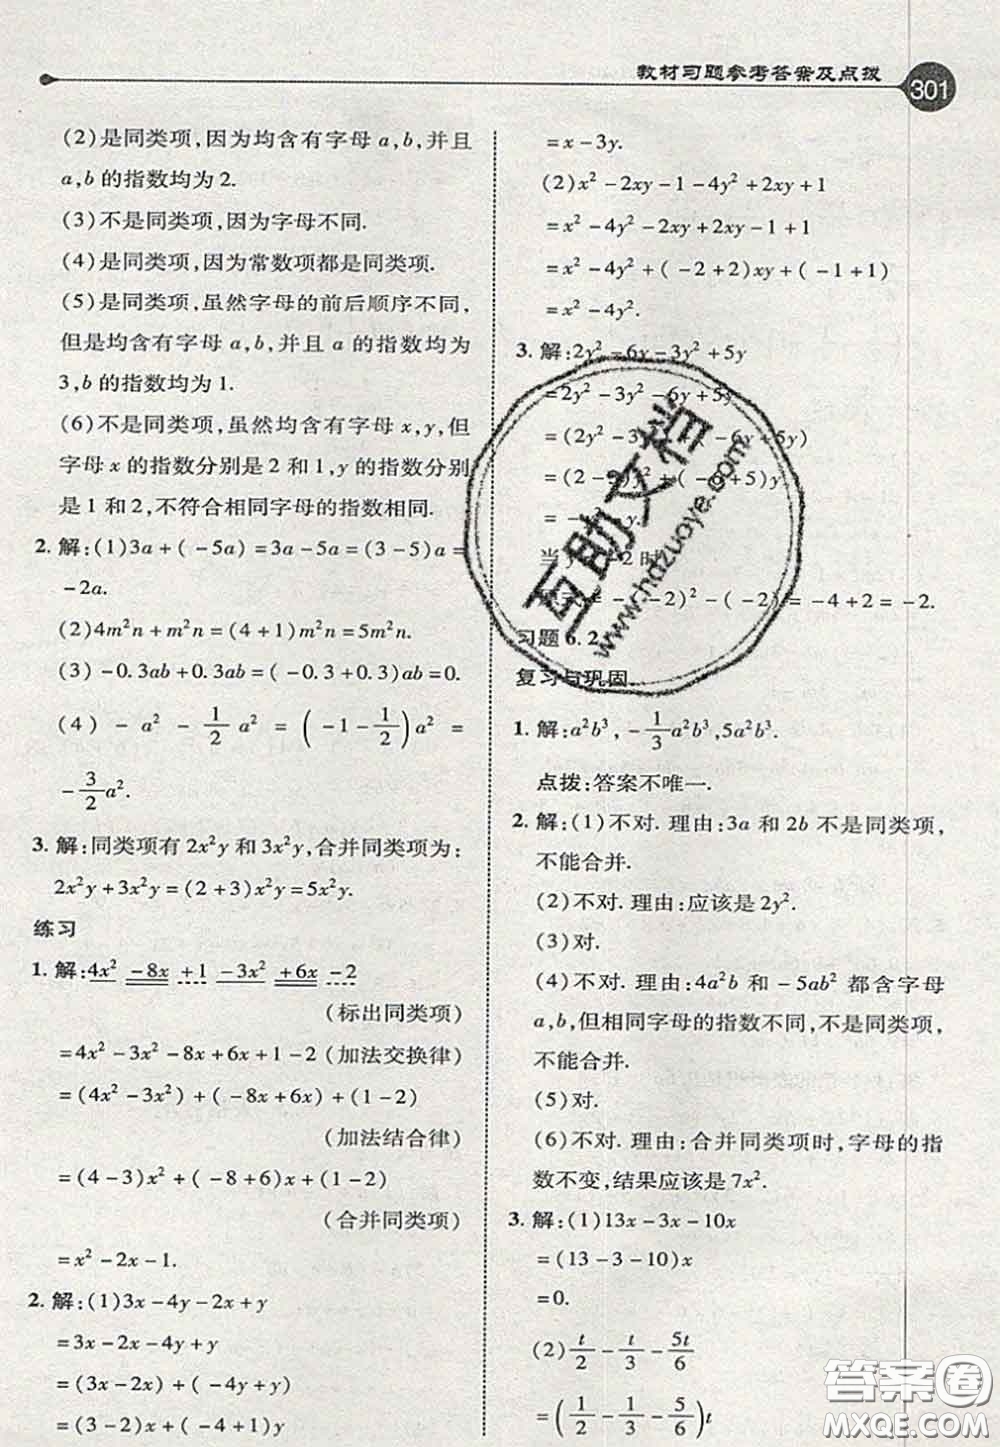 教材习题参考答案及点拨 301
(2)是同类项,因为均含有字母 a,b,并且
a,b 的指数均为 2.
(3)不是同类项,因为字母不同.
(4)是同类项,因为常数项都是同类项.
(5)是同类项,虽然字母的前后顺序不同,
但是均含有字母 a,b,并且 a 的指数均为
3,b 的指数均为 1.
(6)不是同类项,虽然均含有字母 x,y,但
字母 x 的指数分别是 2 和 1,y 的指数分别
是 1 和 2,不符合相同字母的指数相同.
2. 解:(1)3a+(-5a)=3a-5a=(3-5)a=
-2a.
(2)4m²n+m²n=(4+1)m²n=5m²n.
(3)-0.3ab+0.3ab=(-0.3+0.3)ab=0.
(4) -a² - 1/2 a² = (-1-1/2)a² =
-3/2 a².
3. 解:同类项有 2x²y 和 3x²y,合并同类项为:
2x²y+3x²y=(2+3)x²y=5x²y.
练习
1. 解:4x² -8x +1 -3x² +6x -2
(标出同类项)
=4x²-3x²-8x+6x+1-2(加法交换律)
=(4x²-3x²)+(-8x+6x)+(1-2)
(加法结合律)
=(4-3)x²+(-8+6)x+(1-2)
(合并同类项)
=x²-2x-1.
2. 解:(1)3x-4y-2x+y
=3x-2x-4y+y
=(3x-2x)+(-4y+y)
=(3-2)x+(-4+1)y
=x-3y.
(2)x²-2xy-1-4y²+2xy+1
=x²-4y²-2xy+2xy-1+1
=x²-4y²+(-2+2)xy+(-1+1)
=x²-4y².
3. 解:2y²-6y-3y²+5y
=2y²-3y²-6y+5y
=(2y²-3 (-6y+5y)
=(2- +(-6+5)y
=-
当 2时
-2)²-(-2)=-4+2=-2.
习题6.2
复习与巩固
1. 解:a²b³,-1/3 a²b³,5a²b³.
点拨:答案不唯一.
2. 解:(1)不对. 理由:3a 和 2b 不是同类项,
不能合并.
(2)不对. 理由:应该是 2y².
(3)对.
(4)不对. 理由:4a²b 和 -5ab² 都含字母
a,b,但相同字母的指数不同,不是同类项,
不能合并.
(5)对.
(6)不对. 理由:合并同类项时,字母的指
数不变,结果应该是 7x².
3. 解:(1)13x-3x-10x
=(13-3-10)x
=0.
(2) t/2 - t/3 - 5t/6
=(1/2-1/3-5/6)t
互助文档
www.hdzuoye.com
答案圈
MXQE.COM